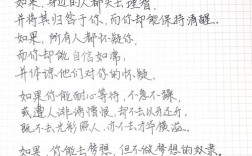 如果，身边的人都失去理智，
并将其归咎于你，而你却能保持清醒。
如果，所有人都怀疑你，
而你却能自信如常，
并体谅他们对你的怀疑。
如果你能耐心等待，不急不躁，
或遭人诽谤憎恨，却不以从牙还牙
既不光彩照人，亦不才华横溢。
如果，你能去梦想，但不做梦想的奴隶